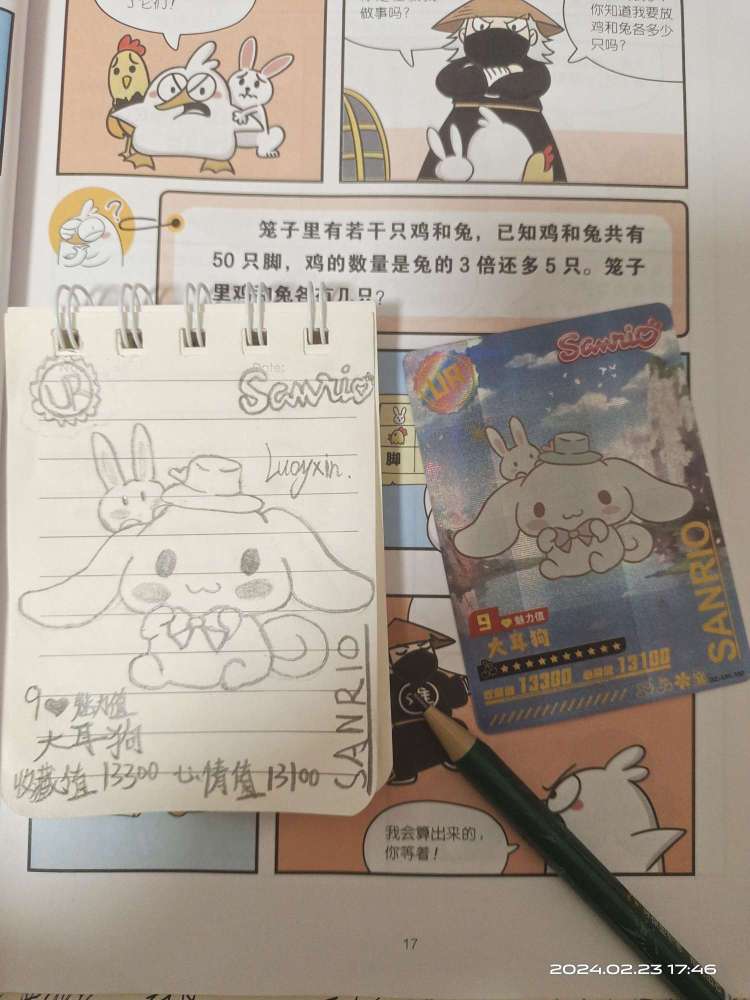 了它们！
做事吗？
你知道我要放
鸡和兔各多少
只吗？
?
笼子里有若干只鸡和兔，已知鸡和兔共有
50 只脚，鸡的数量是兔的 3 倍还多 5 只。笼子
里鸡和兔各有几只？
Date:
UR
Sanrio
Luoyxin.
SANRIO
9 魅力值
大耳狗
收藏值 13300 心情值 13100
UR
Sanrio
SANRIO
9 魅力值
大耳狗
13300
13100
脚
我会算出来的，
你等着！
17
2024.02.23 17:46